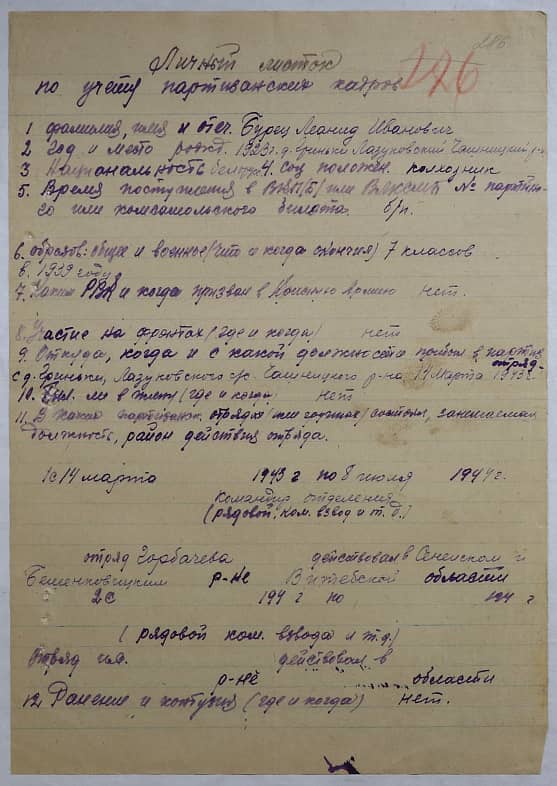 286
Личный листок
по учету партизанских кадров
126
1 фамилия, имя и отч. Бурец Леонид Иванович
2 Год и место рожд. 1923г. д. Гриньки Лазуковский Чашницкий р-н
3 Национальность белорус 4. Соц положен. колхозник
5. Время поступления в ВКП(б) или ВЛКСМ № партий-
го или комсомольского билета. б/п.
6. образов: общее и военное (что и когда окончил) 7 классов
в. 1939 году
7. Каким РВК и когда призван в Красную Армию нет.
8. Участие на фронтах (где и когда) нет
9. Откуда, когда и с какой должности прибыл в партиз
отряд-
с д. Гриньки, Лазуковского с/с. Чашницкого р-на 14 Марта 1943г.
10. Был. ли в плену (где и когда) нет
11. В каких партизанск. отрядах (или состоял, занимаемая
должность, район действия отряда.
1 с 14 марта 1943 г по 8 июля 1944 г.
командир отделения
(рядовой, ком. взвод и т. д.)
отряд Горбачева действовал в Сенненском и
Бешенковицким р-не Витебской области
2 с 194 г по 194 г
(рядовой ком. взвода и т.д.)
Отряд им. действовал в
р-не области
12. Ранение и контузия (где и когда) нет.